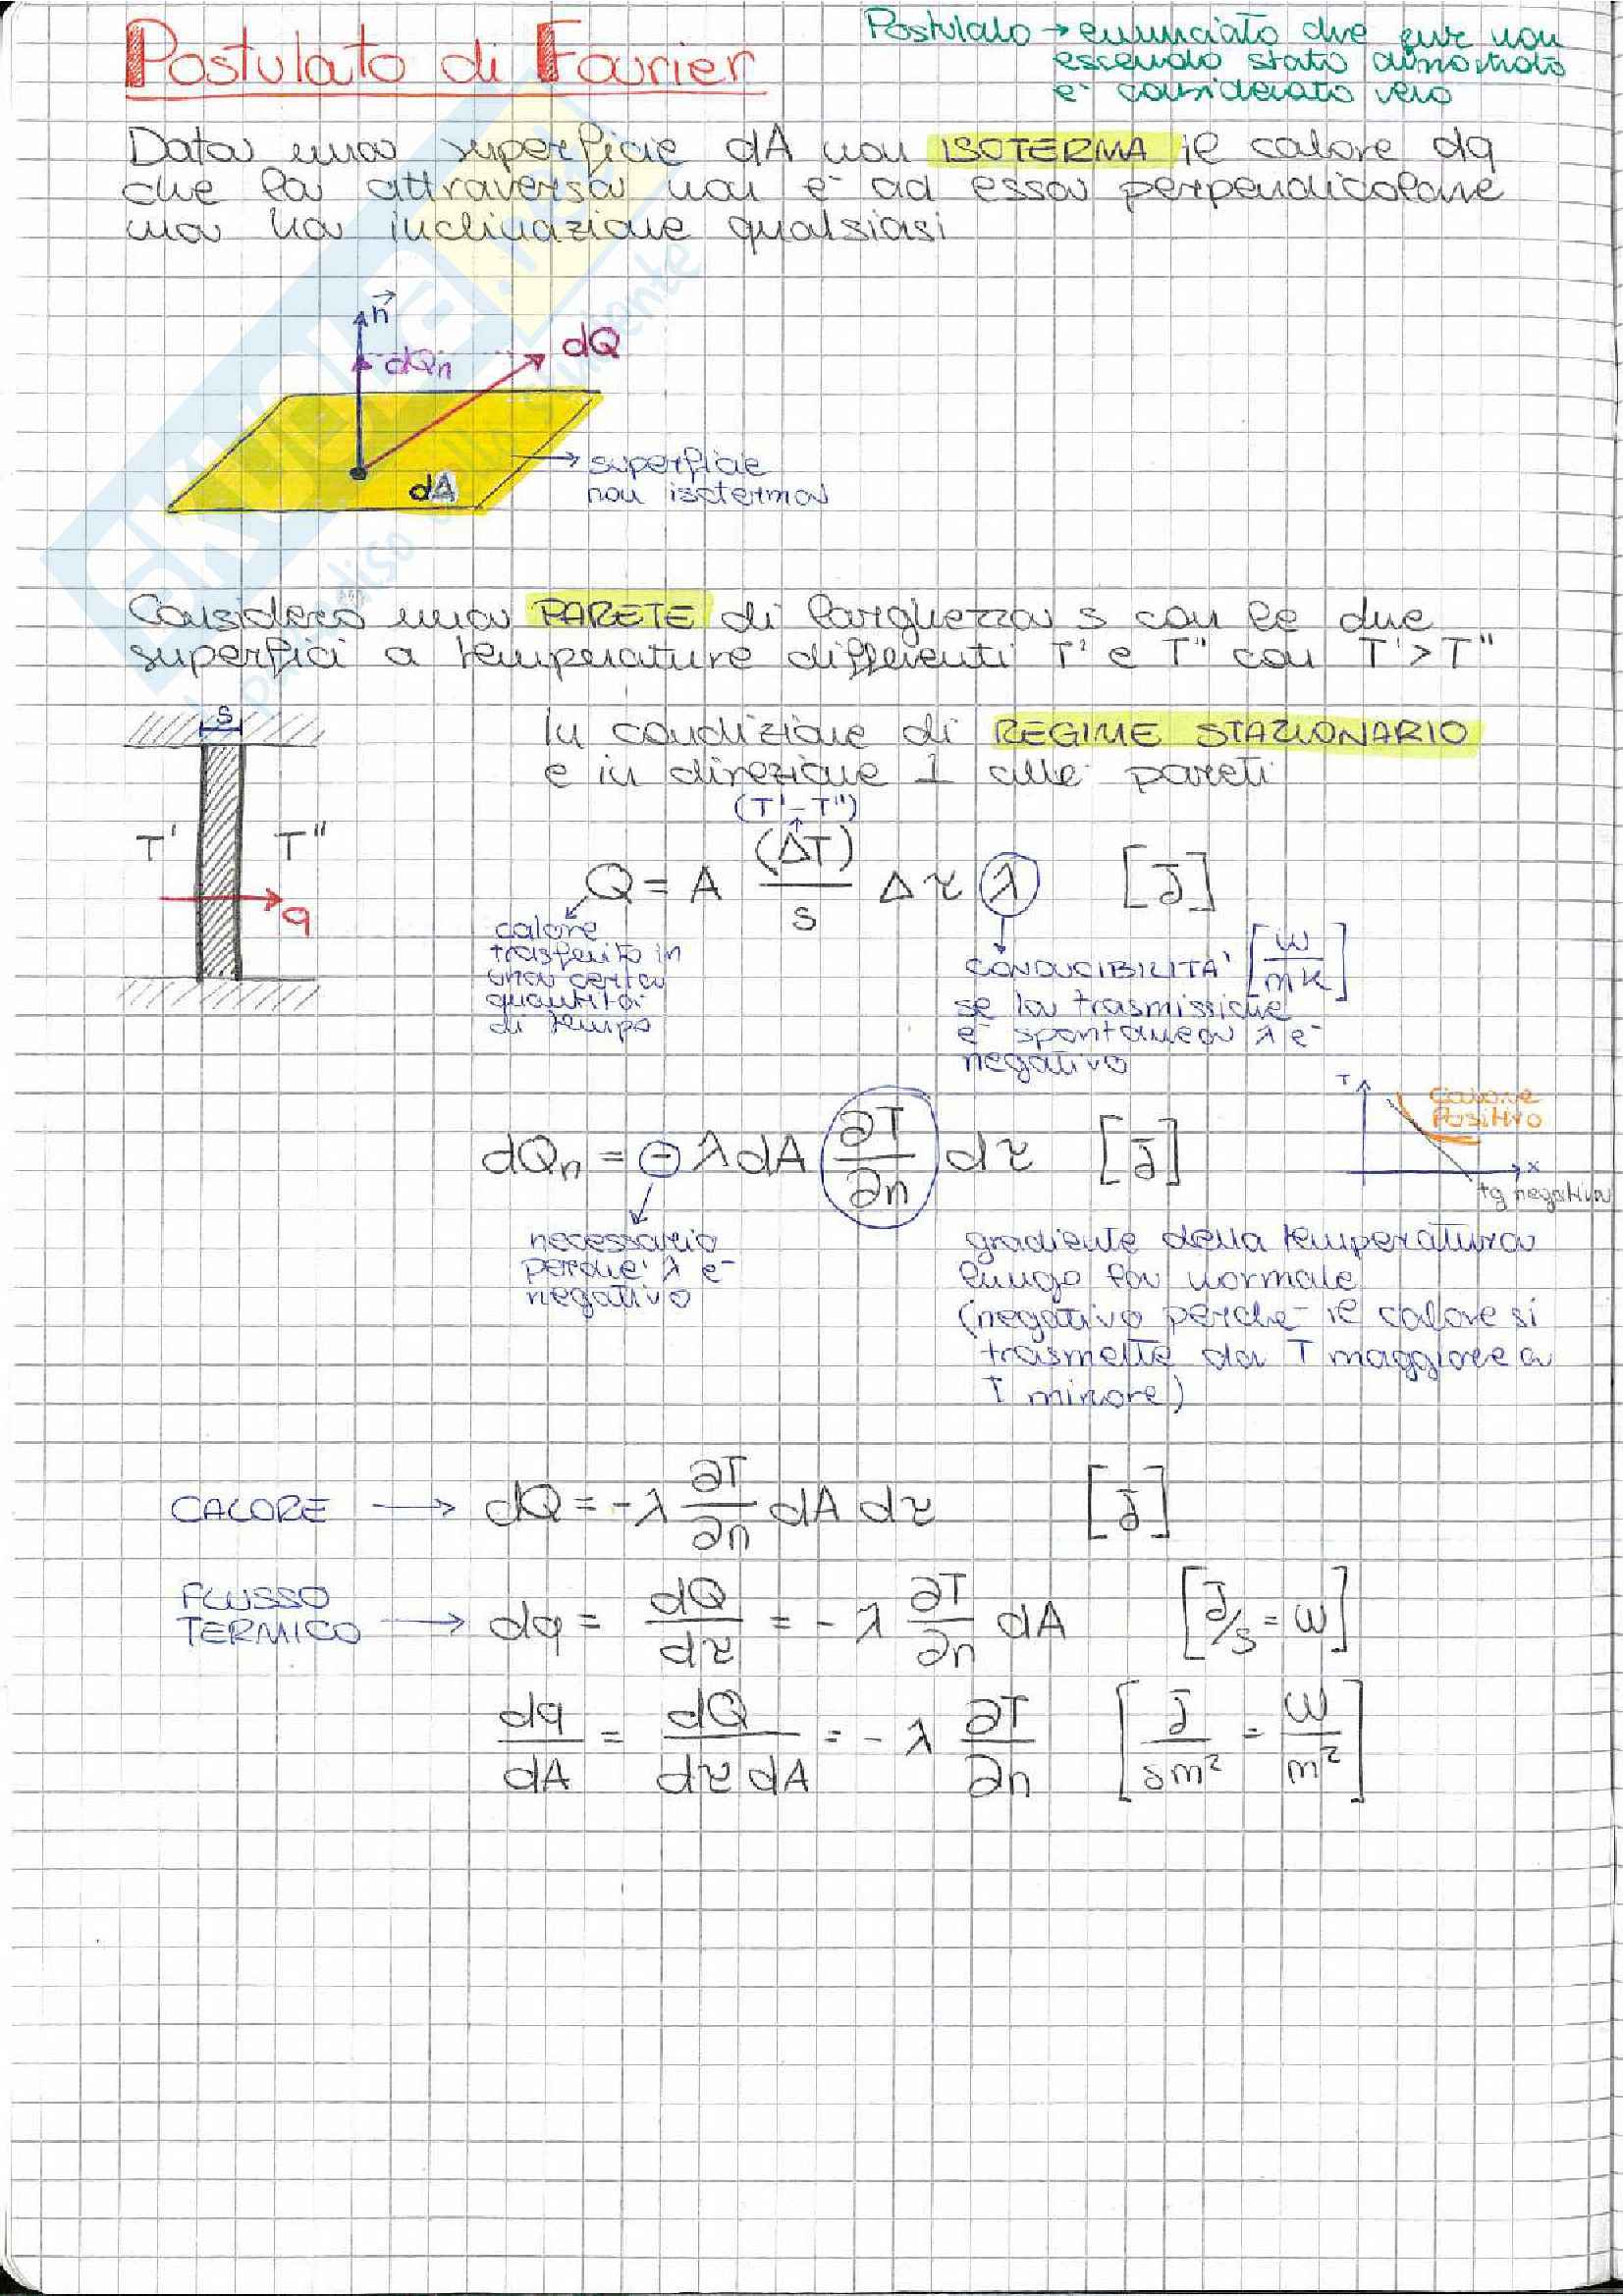 Postulato di Fourier
Postulato → enunciato che pur non
essendo stato dimostrato
è considerato vero
Data una superficie dA non ISOTERMA il calore dq
che la attraversa non è ad essa perpendicolare
ma ha inclinazione qualsiasi
n
dQn
dQ
dA
superficie
non isoterma
Considero una PARETE di larghezza s con le due
superfici a temperature differenti T' e T" con T'>T"
s
T'
T"
q
In condizione di REGIME STAZIONARIO
e in direzione ⊥ alle pareti
(T'-T")
Q = A (ΔT)/s Δτ λ [J]
calore
trasferito in
una certa
quantità
di tempo
CONDUCIBILITA' [W/mK]
se la trasmissione
è spontanea λ è
negativo
dQn = - λ dA ∂T/∂n dτ [J]
necessario
perché λ è
negativo
T
calore
positivo
x
tg negativa
gradiente della temperatura
lungo la normale
(negativo perché il calore si
trasmette da T maggiore a
T minore)
CALORE → dQ = -λ ∂T/∂n dA dτ [J]
FLUSSO
TERMICO → dq = dQ/dτ = - λ ∂T/∂n dA [J/s = W]
dq/dA = dQ/dτ dA = - λ ∂T/∂n [J/sm² = W/m²]